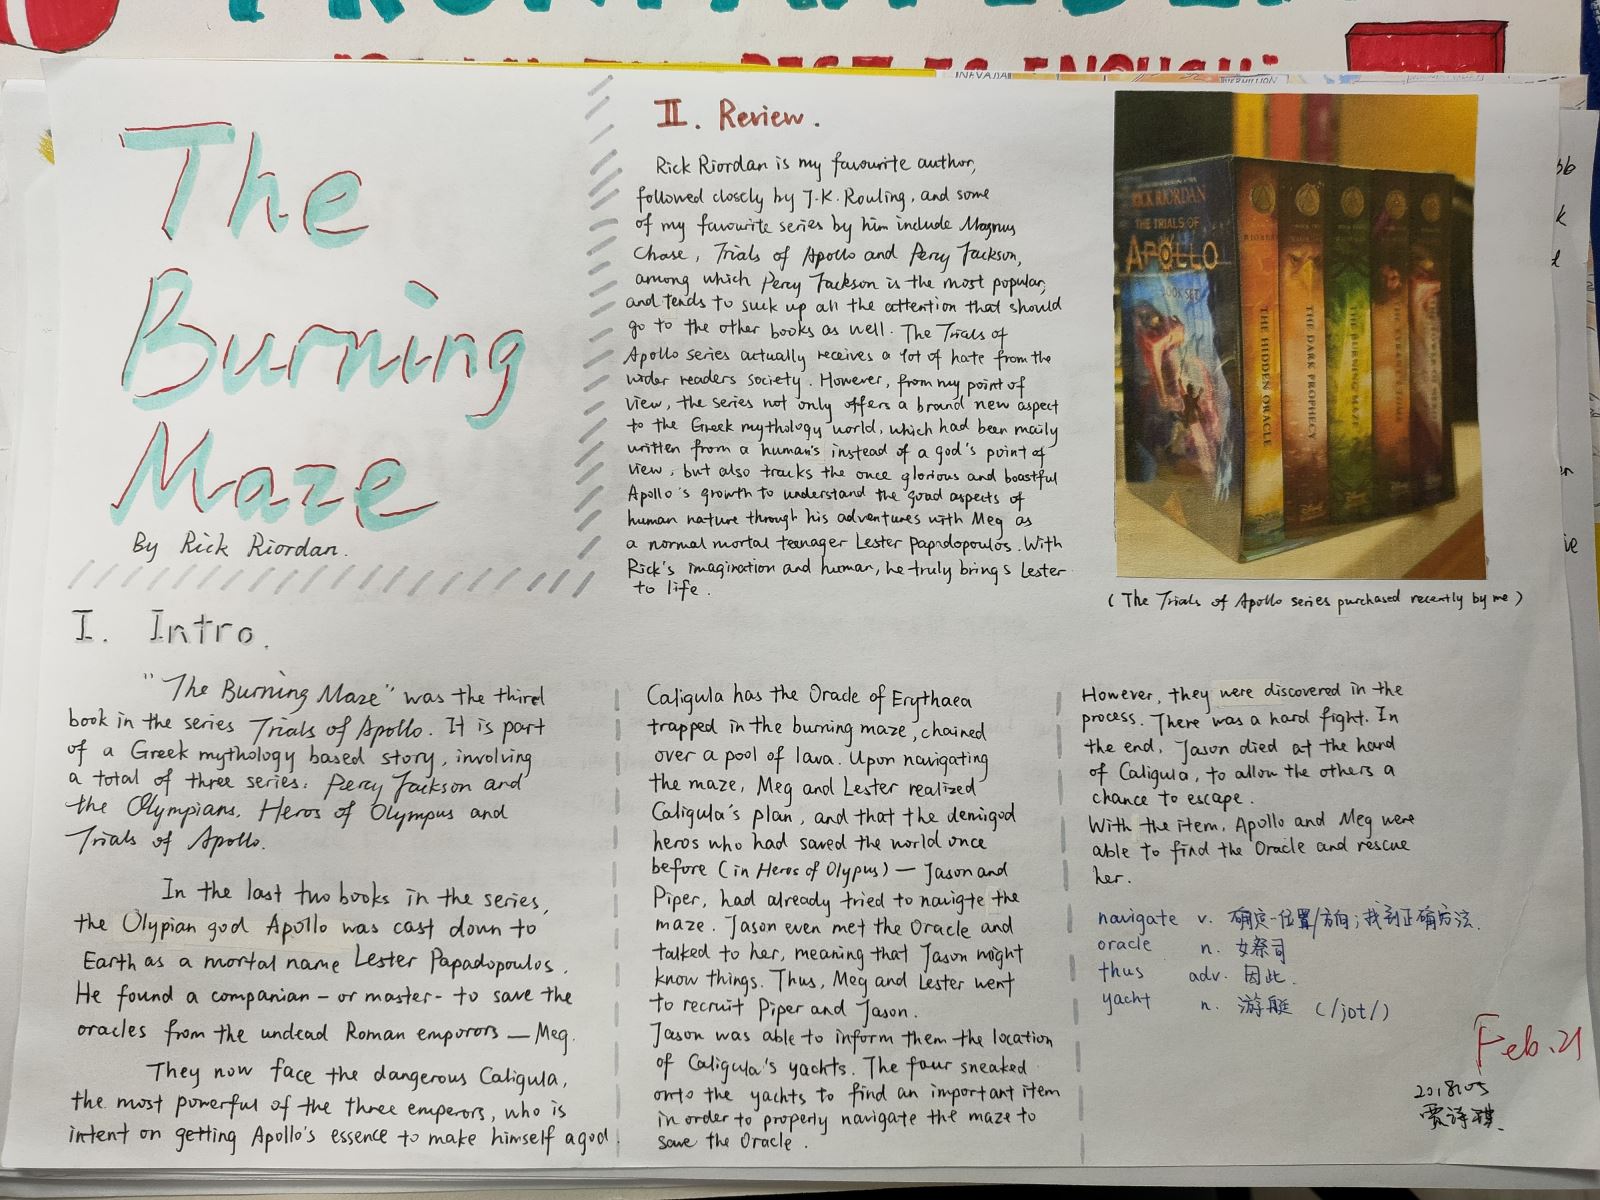 "IS ENOUGH"
NEVADA
VERMILLION
The
Burning
Maze
By Rick Riordan.
II. Review.
Rick Riordan is my favourite author,
followed closely by J.K. Rouling, and some
of my favourite series by him include Magnus
Chase, Trials of Apollo and Percy Jackson,
among which Percy Jackson is the most popular,
and tends to suck up all the attention that should
go to the other books as well. The Trials of
Apollo series actually receives a lot of hate from the
wider readers society. However, from my point of
view, the series not only offers a brand new aspect
to the Greek mythology world, which had been maily
written from a human's instead of a god's point of
view, but also tracks the once glorious and boastful
Apollo's growth to understand the good aspects of
human nature through his adventures with Meg as
a normal mortal teenager Lester Papadopoulos. With
Rick's imagination and human, he truly brings Lester
to life.
RICK RIORDAN
THE TRIALS OF
APOLLO
BOOK SET
THE HIDDEN ORACLE
THE DARK PROPHECY
THE BURNING MAZE
Disney
(The Trials of Apollo series purchased recently by me)
I. Intro.
"The Burning Maze" was the third
book in the series Trials of Apollo. It is part
of a Greek mythology based story, involving
a total of three series: Percy Jackson and
the Olympians, Heros of Olympus and
Trials of Apollo.
In the last two books in the series,
the Olypian god Apollo was cast down to
Earth as a mortal name Lester Papadopoulos.
He found a companian - or master - to save the
oracles from the undead Roman emporors — Meg.
They now face the dangerous Caligula,
the most powerful of the three emperors, who is
intent on getting Apollo's essence to make himself a god.
Caligula has the Oracle of Erythaea
trapped in the burning maze, chained
over a pool of lava. Upon navigating
the maze, Meg and Lester realized
Caligula's plan, and that the demigod
heros who had saved the world once
before (in Heros of Olypus) — Jason and
Piper, had already tried to navigte the
maze. Jason even met the Oracle and
talked to her, meaning that Jason might
know things. Thus, Meg and Lester went
to recruit Piper and Jason.
Jason was able to inform them the location
of Caligula's yachts. The four sneaked
onto the yachts to find an important item
in order to properly navigate the maze to
save the Oracle.
However, they were discovered in the
process. There was a hard fight. In
the end, Jason died at the hand
of Caligula, to allow the others a
chance to escape.
With the item, Apollo and Meg were
able to find the Oracle and rescue
her.
navigate v. 确定位置/方向;找到正确方法.
oracle n. 女祭司
thus adv. 因此.
yacht n. 游艇 (/jɒt/)
Feb.21
2018105